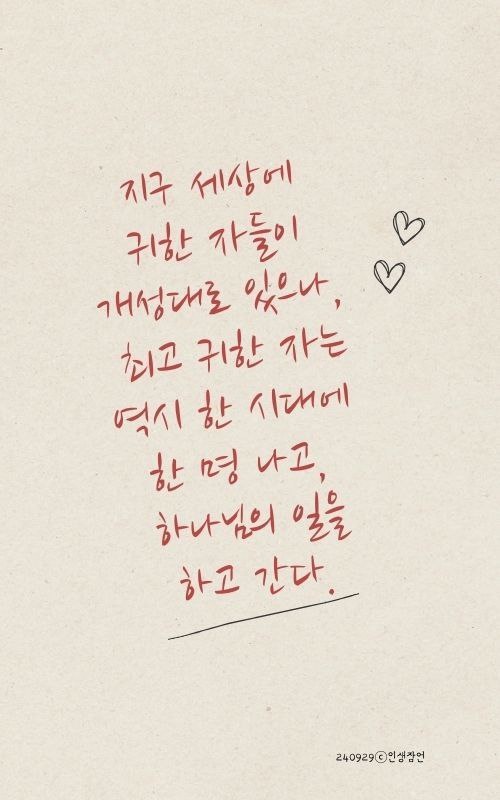 지구 세상에
귀한 자들이
개성대로 있으나,
최고 귀한 자는
역시 한 시대에
한 명 나고,
하나님의 일을
하고 간다.
240929ⓒ인생잠언